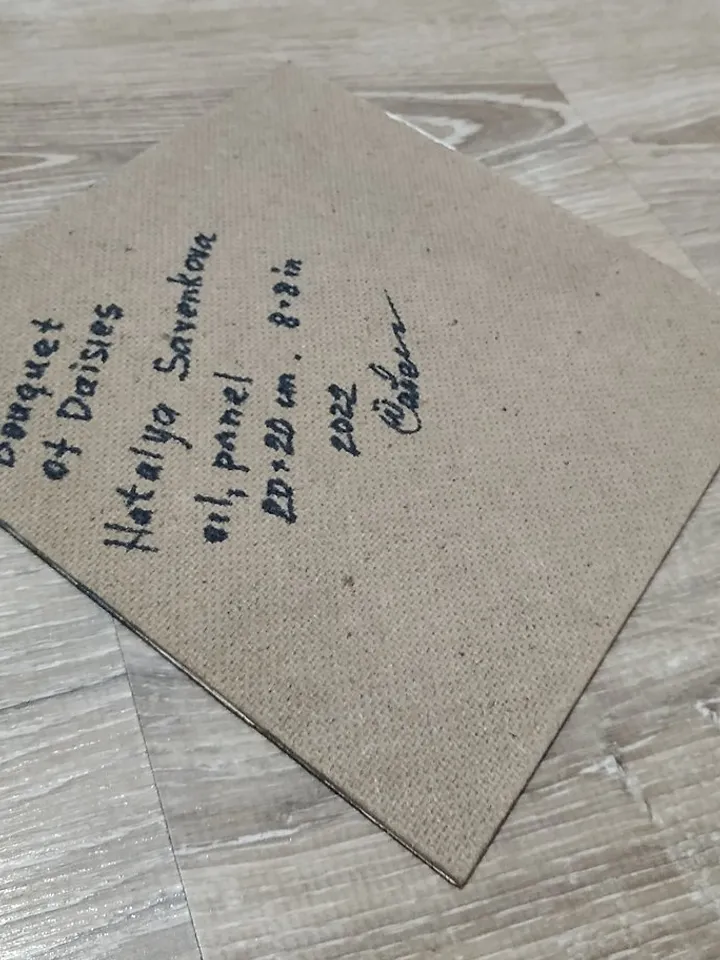 Bouquet
of Daisies
Natalya Savenkova
oil, panel
20×20 cm. 8×8 in
2022